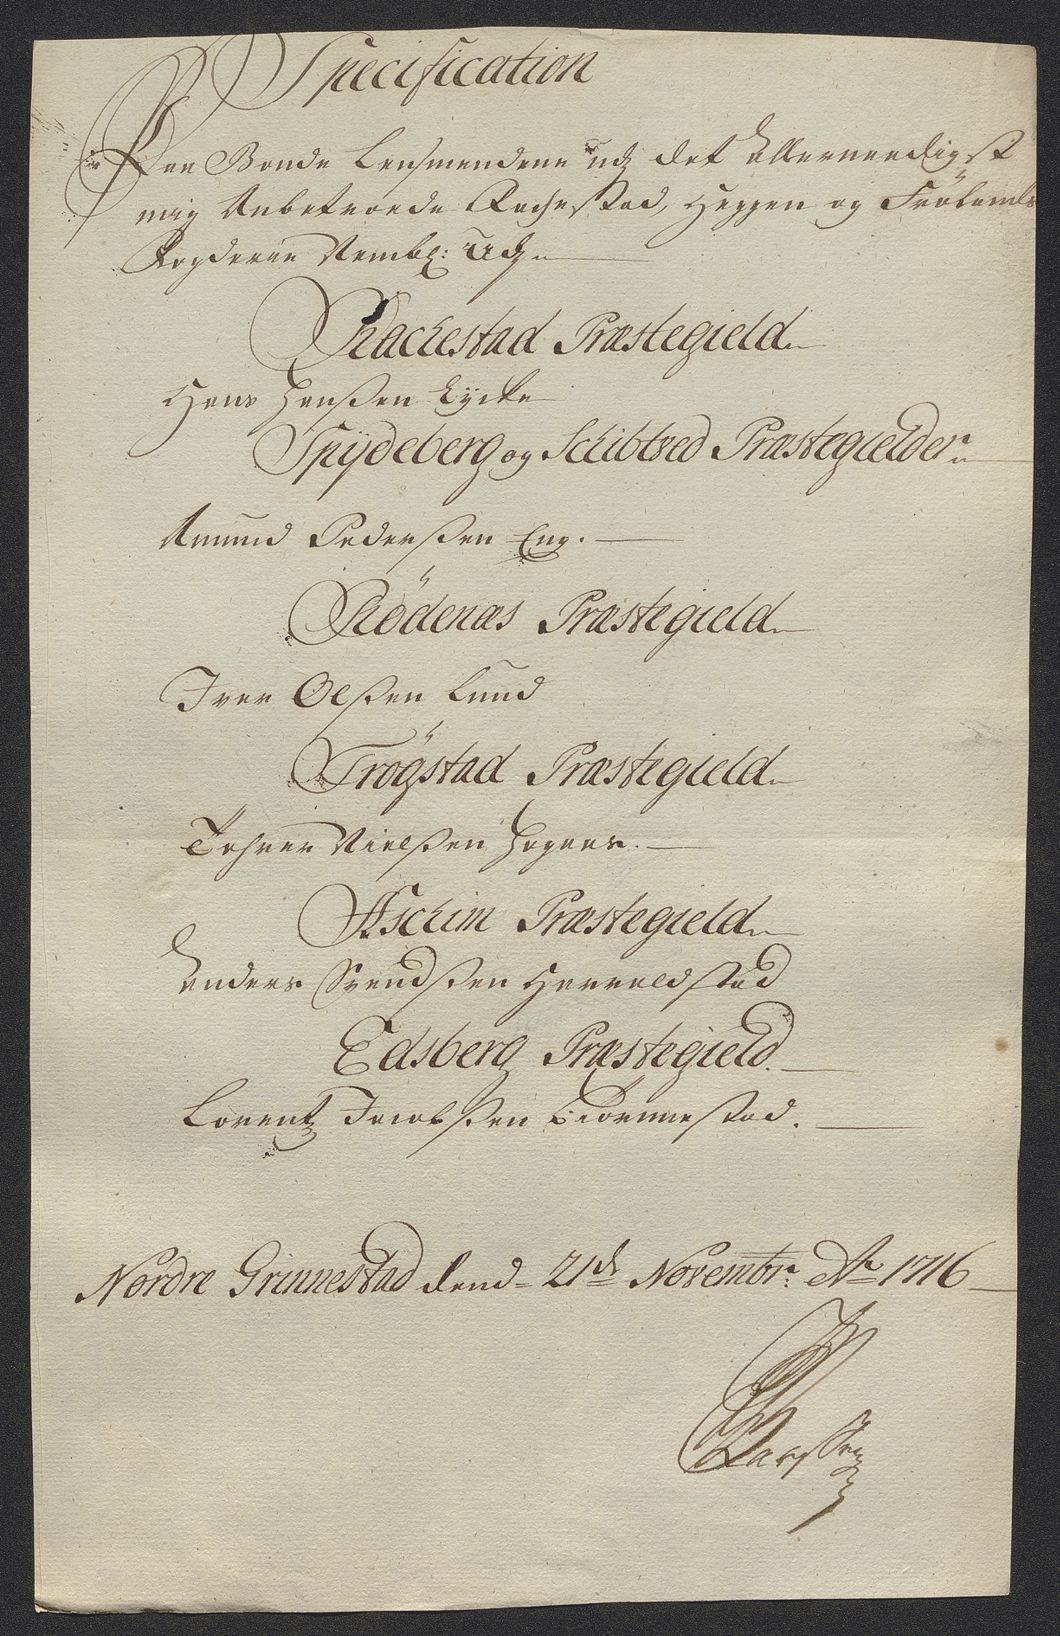 Specification
Paa Bonde Lensmendene udj det Allernaadigst
mig Anbetroede Rachestad, Heggen og Frölands
Fogderie Nembl: Udj
Rachestad Præstegield
Hans Hanßen Lÿcke
Spÿdeberg og Schibtved Præstegielder
Amund Pederßen Eng.
Rödenæs Præstegield
Iver Olßen Lund
Trögstad Præstegield
Nielßen
Aschim Præstegield
Anders Svendßen Haraldstad
Edsberg Præstegield.
Lorentz Jacobßen Biörnnestad.
Nordre Grinnestad dend 21de Novembr: Ao 1716
Larssen